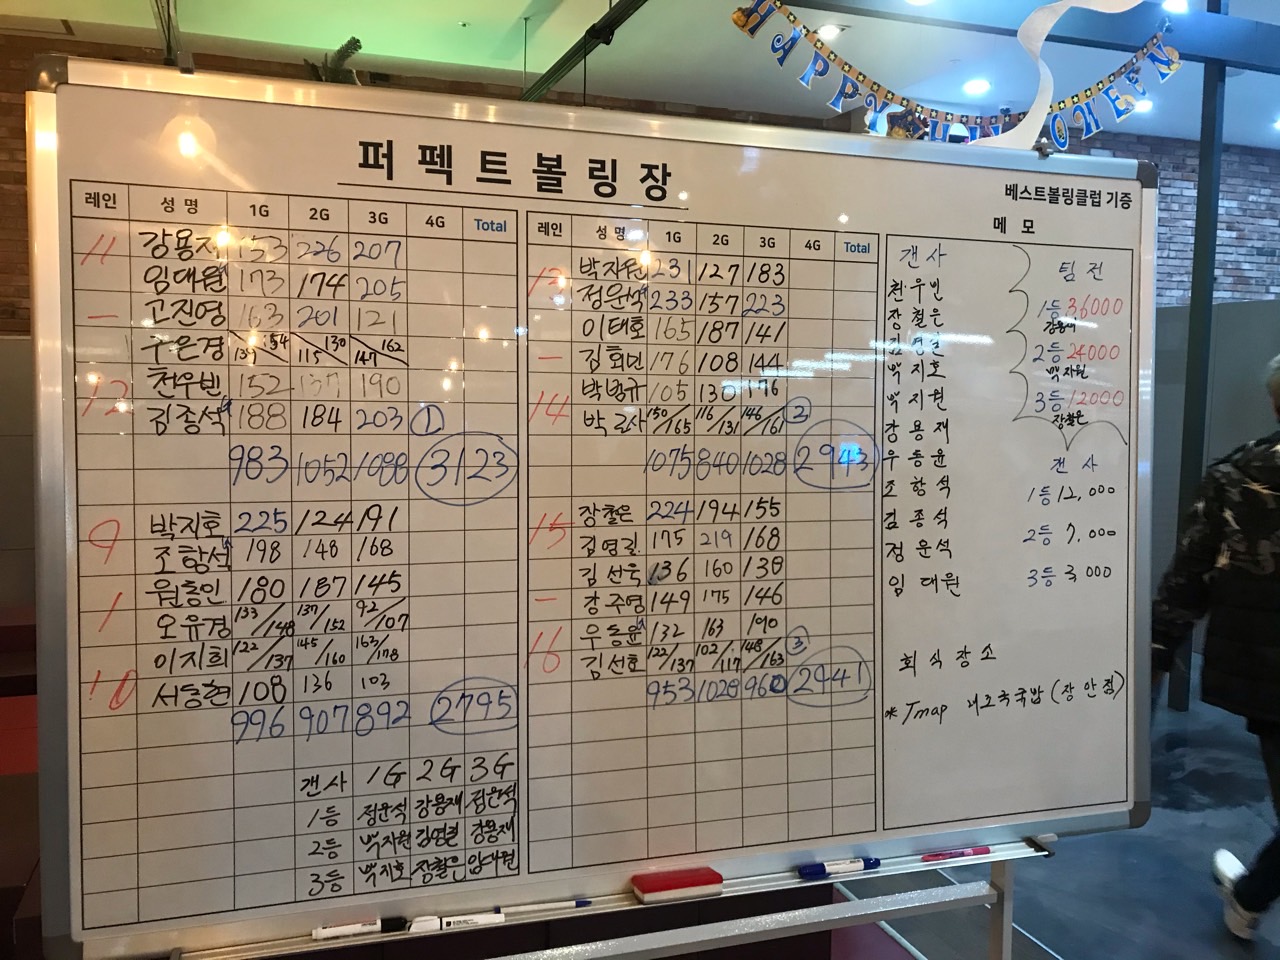 HAPPY HALLOWEEN
퍼펙트볼링장
베스트볼링클럽 기증
레인 성명 1G 2G 3G 4G Total
11 강용재 153 226 207
임대원 173 174 205
- 고진영 163 201 121
우은경 139/154 115/130 147/162
12 천우빈 152 137 190
김종석 188 184 203 ①
983 1052 1088 3123
9 박지호 225 124 191
조항석 198 148 168
원종인 180 187 145
1 오유경 133/148 137/152 92/107
이지희 122/137 145/160 163/178
10 서동현 108 136 103
996 907 892 2795
갠사 1G 2G 3G
1등 정윤석 강용재 정윤석
2등 백지원 김영길 강용재
3등 백지호 장철은 임대원
레인 성명 1G 2G 3G 4G Total
13 박지원 231 127 183
정윤석 233 157 223
이태호 165 187 141
- 176 108 144
박범규 105 130 176
14 150/165 116/131 146/161 ②
1075 840 1028 2943
15 장철은 224 194 155
김영길 175 219 168
김선욱 136 160 138
- 강주영 149 175 146
우동윤 132 163 190
16 김선호 122/137 102/117 148/163 ③
953 1028 960 2941
메모
갠사
천우빈
장철은
김영길
백지호
백지원
강용재
우동윤
조항석
김종석
정윤석
임대원
팀전
1등 36000
강용재
2등 24000
백지원
3등 12000
장철은
갠사
1등 12,000
2등 7,000
3등 3,000
회식장소
* Tmap 국밥 (장안점)